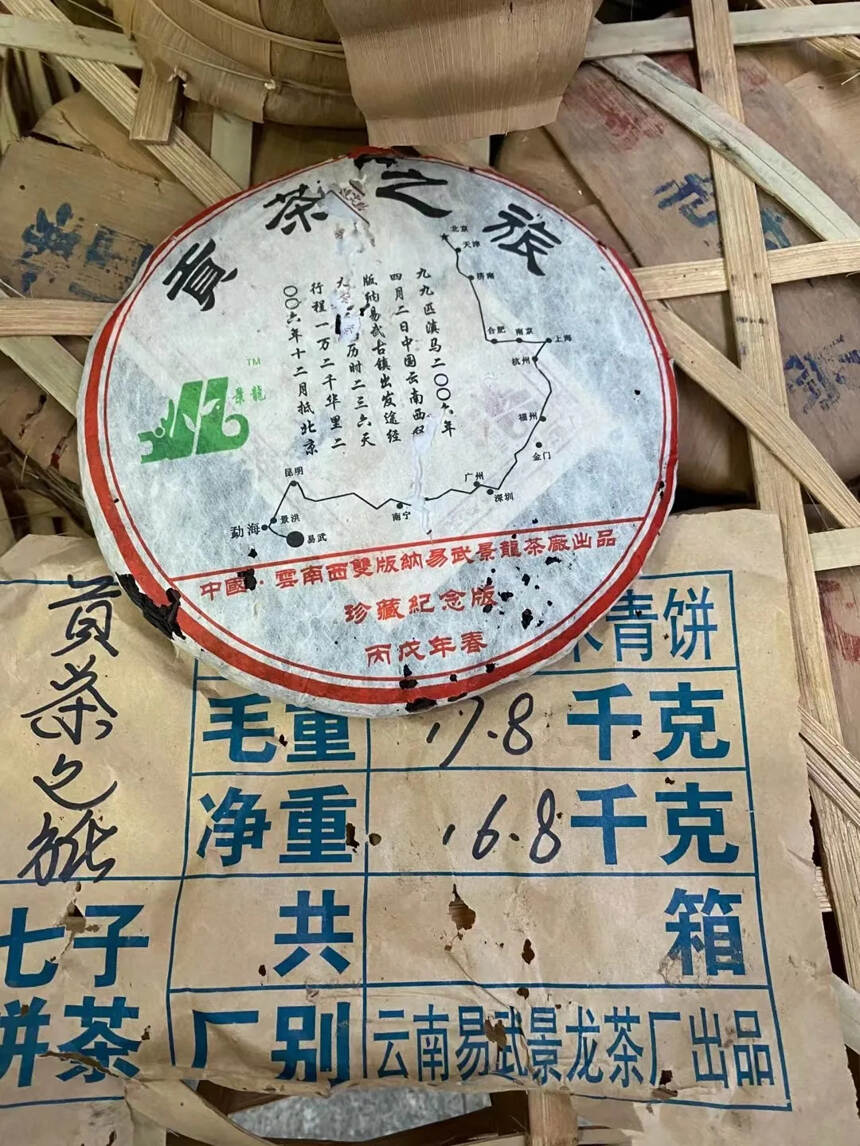 贡茶之旅
九九匹滇马二〇〇六年
四月二日中国云南西双
版纳易武古镇出发途经
历时二三六天
行程一万二千华里二
〇〇六年十二月抵北京
TM
景龍
北京
天津
济南
合肥
南京
上海
杭州
福州
金门
广州
深圳
南宁
昆明
勐海
景洪
易武
中國·雲南西雙版納易武景龍茶廠出品
珍藏紀念版
丙戌年春
贡茶之旅
青饼
毛重 17.8 千克
净重 16.8 千克
七子
饼茶
共 箱
厂别 云南易武景龙茶厂出品